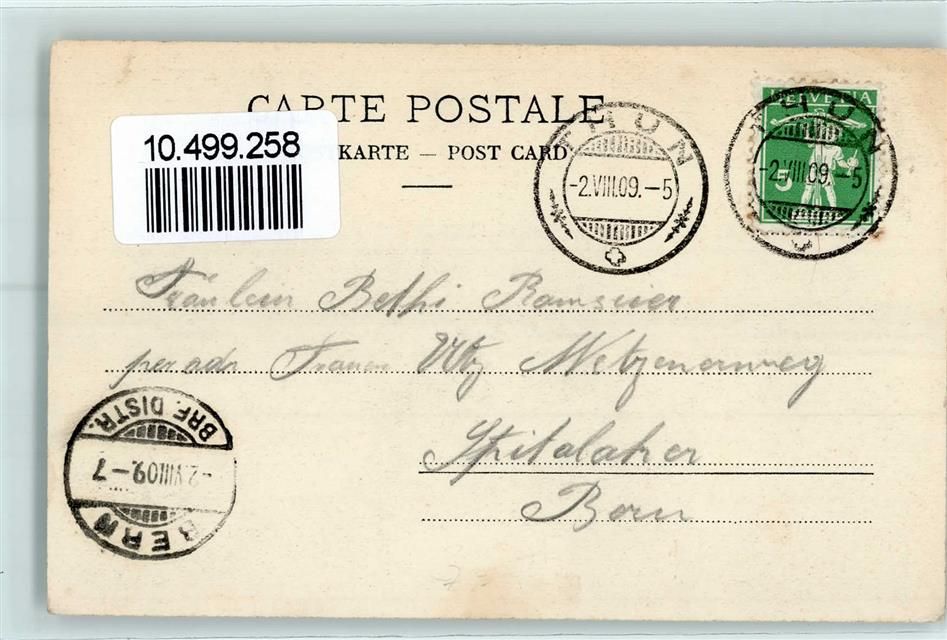 CARTE POSTALE
10.499.258
KARTE — POST CARD
THUN
-2.VIII.09.-5
HELVETIA
THUN
-2.VIII.09.-5
5
Fräulein Bethi Ramseier
per adr. Frauen Utz Metzenerweg
Spitalaker
Bern
BRF. DISTR.
-2.VIII.09.-7
BERN